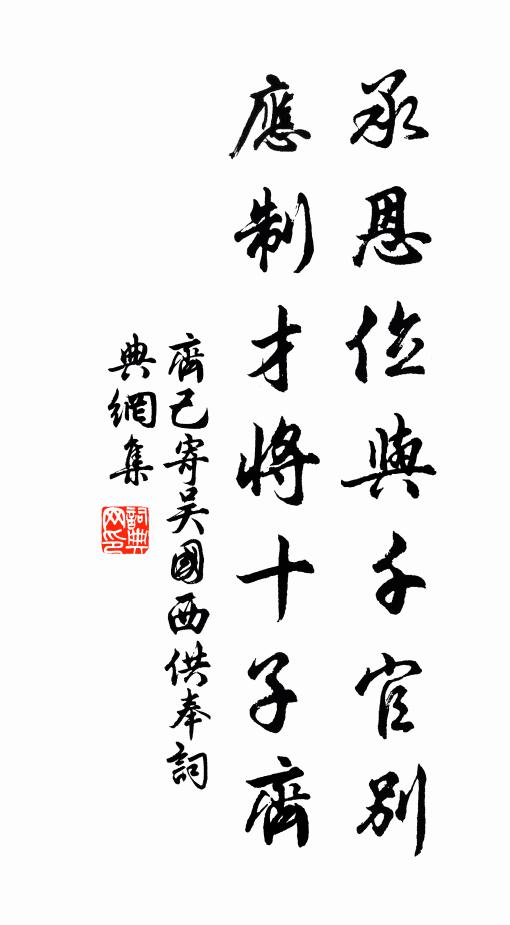 承恩位與千官別
應制才將十子齊
齊己寄吳國西供奉詞
典網集
詞典
网印